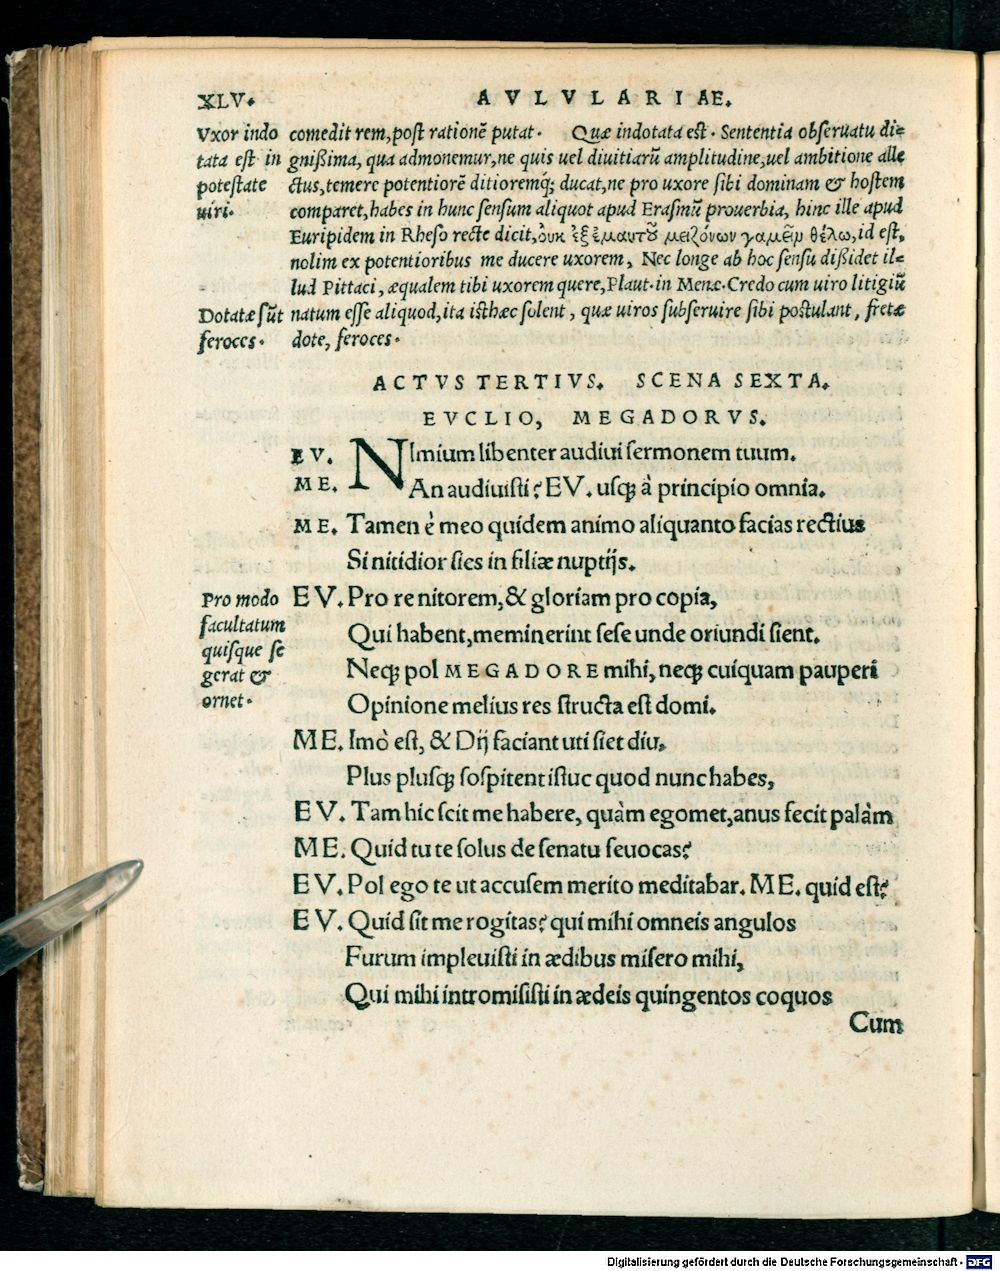 XLV.
AVLVLARIAE.
Vxor indo
tata est in
potestate
uiri.
comedit rem, post rationē putat. Quæ indotata est. Sententia obseruatu di=
gnißima, qua admonemur, ne quis uel diuitiarū amplitudine, uel ambitione alle
ctus, temere potentiorē ditioremq́; ducat, ne pro uxore sibi dominam & hostem
comparet, habes in hunc sensum aliquot apud Erasmū prouerbia, hinc ille apud
Euripidem in Rheso recte dicit, ὀυκ ἐξ ἐμαυτοῦ μειζόνων γαμεῖν θέλω, id est,
nolim ex potentioribus me ducere uxorem, Nec longe ab hoc sensu dißidet il=
lud Pittaci, æqualem tibi uxorem quere, Plaut. in Menæ. Credo cum uiro litigiū
Dotatæ sūt
feroces.
natum esse aliquod, ita isthæc solent, quæ uiros subseruire sibi postulant, fretæ
dote, feroces.
ACTVS TERTIVS. SCENA SEXTA.
EVCLIO, MEGADORVS.
EV. NImium libenter audiui sermonem tuum.
ME. An audiuisti? EV. usq; à principio omnia.
ME. Tamen è meo quidem animo aliquanto facias rectius
Si nitidior sies in filiæ nuptijs.
Pro modo
facultatum
quisque se
gerat &
ornet.
EV. Pro re nitorem, & gloriam pro copia,
Qui habent, meminerint sese unde oriundi sient.
Neq; pol MEGADORE mihi, neq; cuiquam pauperi
Opinione melius res structa est domi.
ME. Imò est, & Dij faciant uti siet diu,
Plus plusq; sospitent istuc quod nunc habes,
EV. Tam hic scit me habere, quàm egomet, anus fecit palàm
ME. Quid tu te solus de senatu seuocas?
EV. Pol ego te ut accusem merito meditabar. ME. quid est?
EV. Quid sit me rogitas? qui mihi omneis angulos
Furum impleuisti in ædibus misero mihi,
Qui mihi intromisisti in ædeis quingentos coquos
Cum
Digitalisierung gefördert durch die Deutsche Forschungsgemeinschaft - DFG